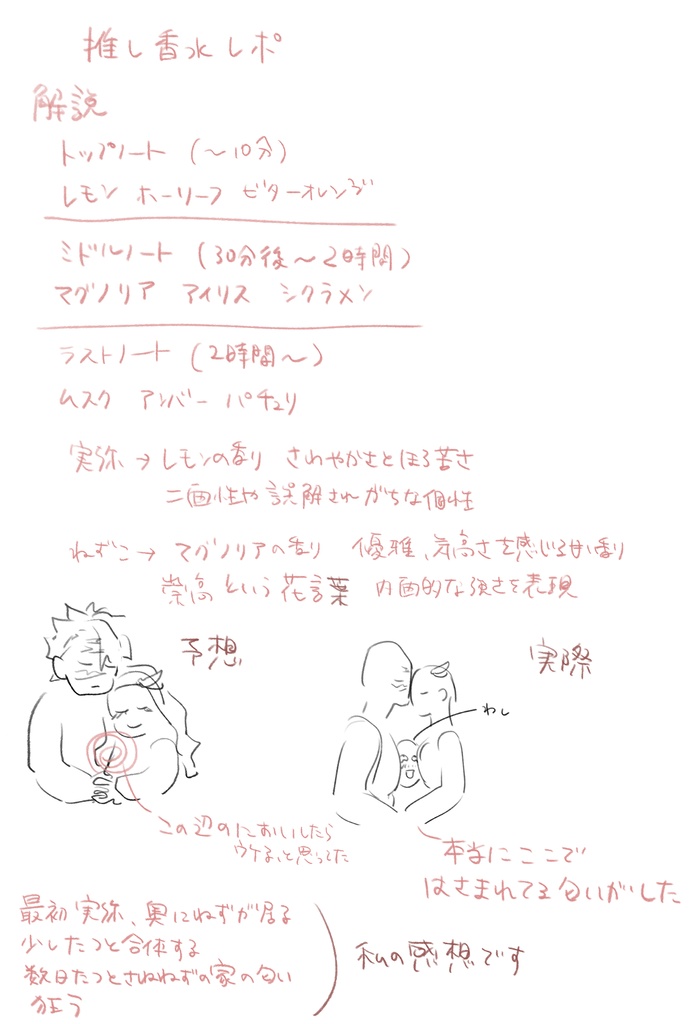 推し香水レポ
解説
トップノート (〜10分)
レモン ホーリーフ ビターオレンジ
ミドルノート (30分後〜2時間)
マグノリア アイリス シクラメン
ラストノート (2時間〜)
ムスク アンバー パチュリ
実弥→レモンの香り さわやかさとほろ苦さ
二面性や誤解されがちな個性
ねずこ→マグノリアの香り 優雅、気高さを感じる甘い香り
崇高という花言葉 内面的な強さを表現
予想
実際
わし
この辺のにおいしたら
ウケる、と思ってた
本当にここで
はさまれてる匂いがした
最初実弥、奥にねずが居る
少したつと合体する
数日たつとさねねずの家の匂い
狂う
私の感想です